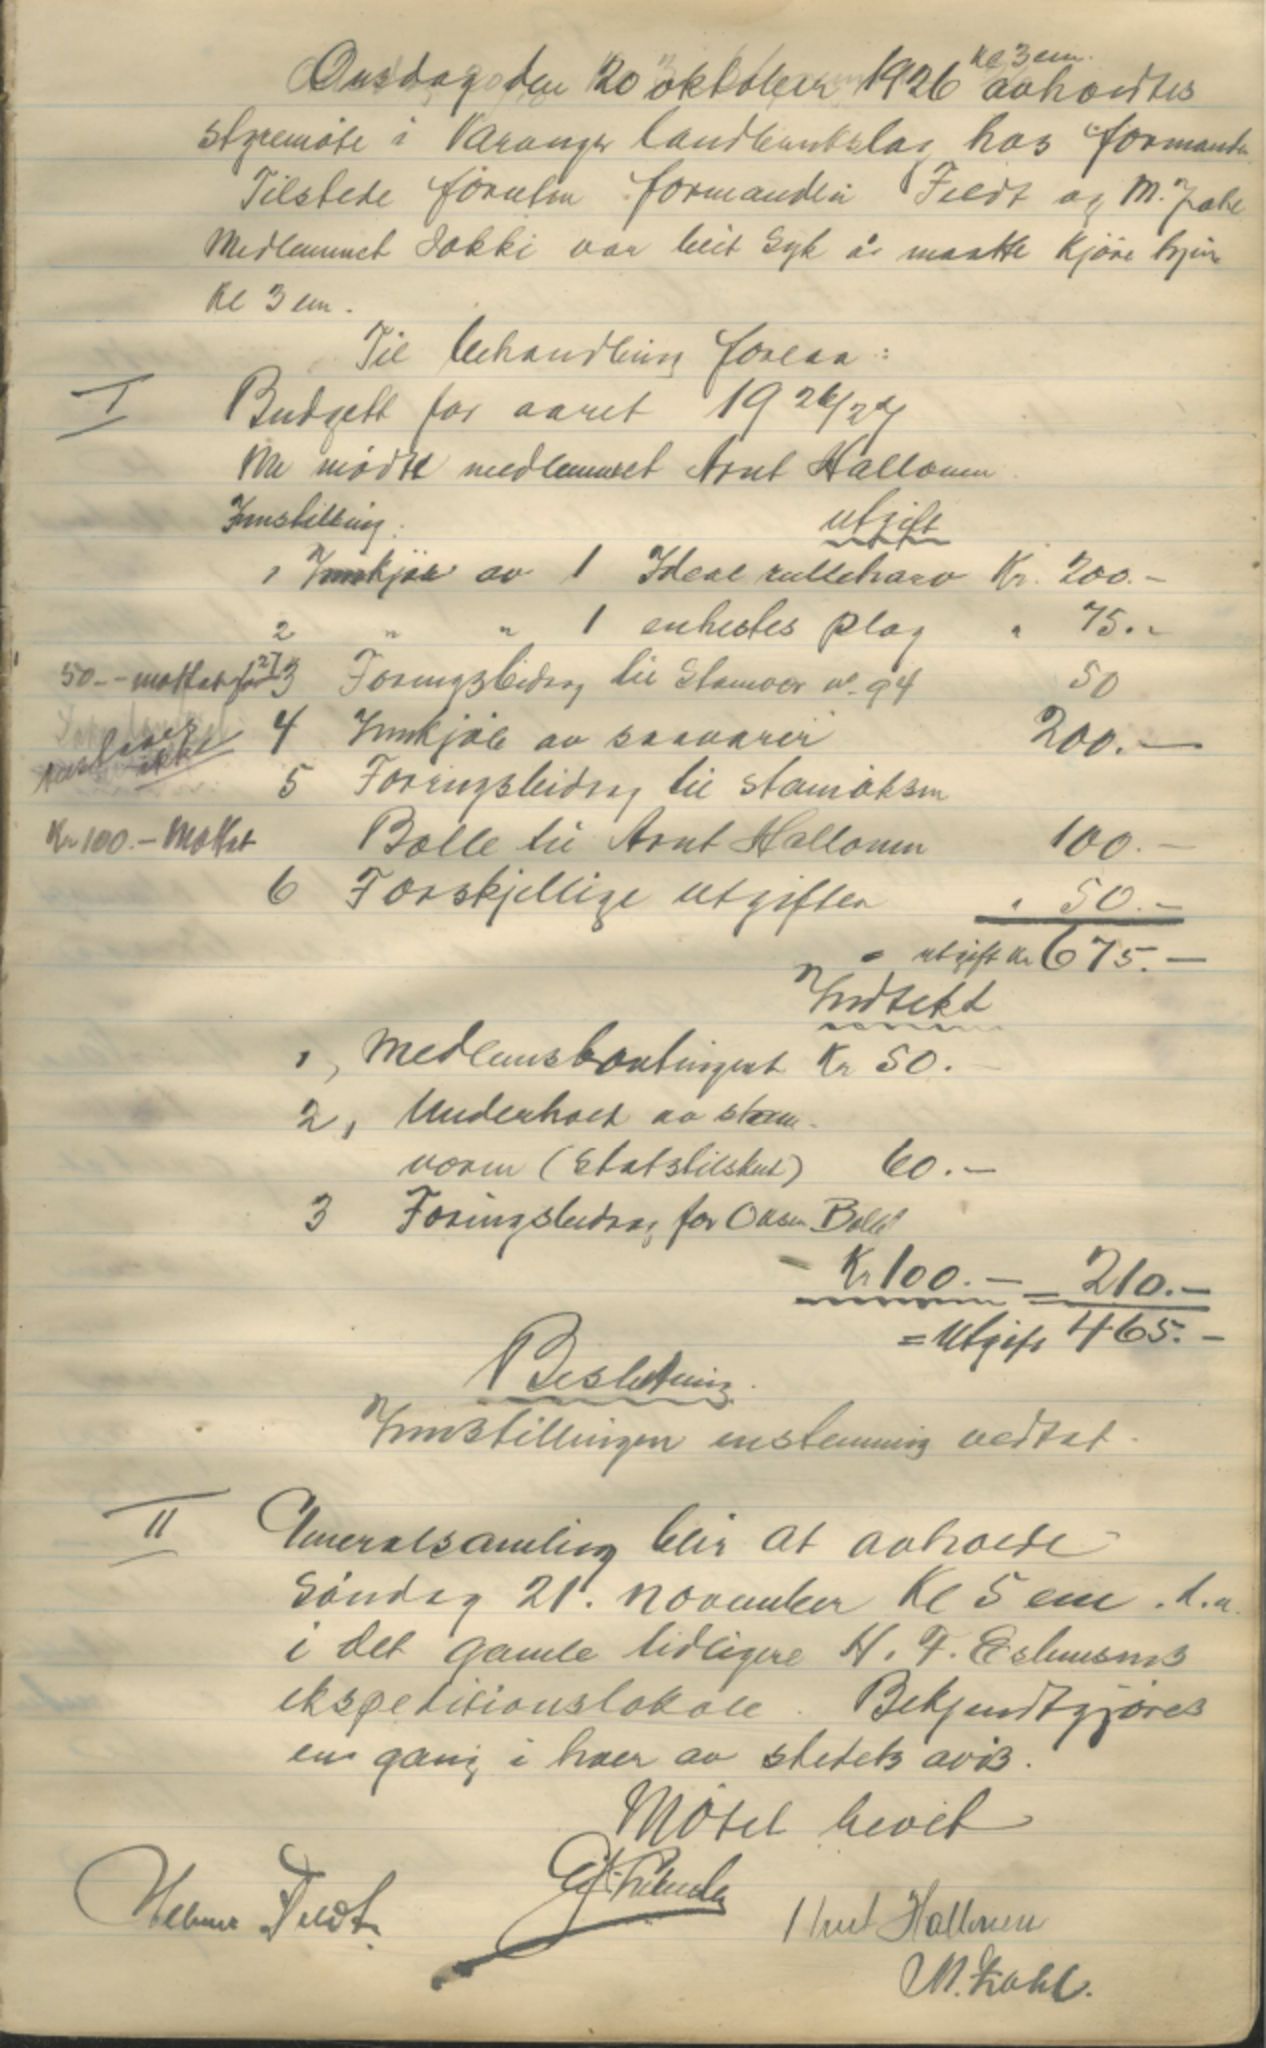 Onsdag den 20 oktober 1926 kl 3 em. avholdtes
styremøte i Varanger landbrukslag hos formanden
Tilstede foruten formanden Feldt og M. Zahl
Medlemmet Jokki var blit syk og maatte kjøre hjem
kl 3 em.
Til behandling forelaa:
I Budgett for aaret 1926/27
Nu mødte medlemmet Arnt Hallonen
Innstilling. utgift
1 Innkjøb av 1 Ideal rulleharv Kr. 200.-
2 " " 1 enhestes plog " 75.-
50.- mottat for 27 3 Foringsbidrag til Stamvær nr. 94 50
4 Innkjøb av saavarer 200.-
ikke
5 Foringsbidrag til stamoksen
Kr 100.- Mottat Balle til Arnt Hallonen 100.-
6 Forskjellige utgifter " 50.-
= utgift kr 675.-
Indtekt
1, Medlemskontingent Kr 50.-
2, Underhold av stam
væren (Statstilskud) 60.-
3 Foringsbidrag for Oksen Balle
Kr 100.- = 210.-
= Utgift 465.-
Beslutning.
Innstillingen enstemmig vedtat.
II Generalsamling blir at avholde
Søndag 21. november Kl 5 em. d.a.
i det gamle tidligere H. F. Esbensens
ekspeditionslokale. Bekjendtgjøres
en gang i hver av stedets avis.
Møtet hevet
Feldt
Arnt Hallonen
M. Zahl.